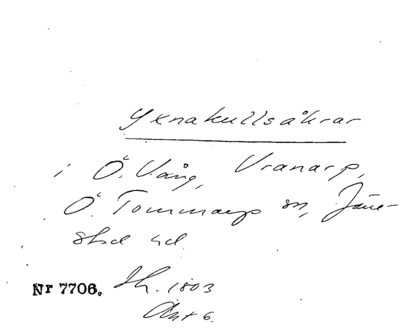 Yxnakullsåkrar
i Ö. Vång, Vranarp,
Ö. Tommarp sn, Järre-
stad hd.
Nr 7706. Sh. 1803
Akt 6.